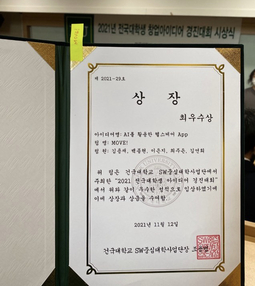 2021년 전국대학생 창업아이디어 경진대회 시상식
제 2021-29호
상 장
최우수상
아이디어명: AI를 활용한 헬스케어 App
팀 명: MOVE!
위 팀은 건국대학교 SW중심대학사업단에서
주최한 "2021 전국대학생 아이디어 경진대회"
에서 위와 같이 우수한 성적으로 입상하였기에
이에 상장과 상금을 수여함.
2021년 11월 12일
건국대학교 SW중심대학사업단장